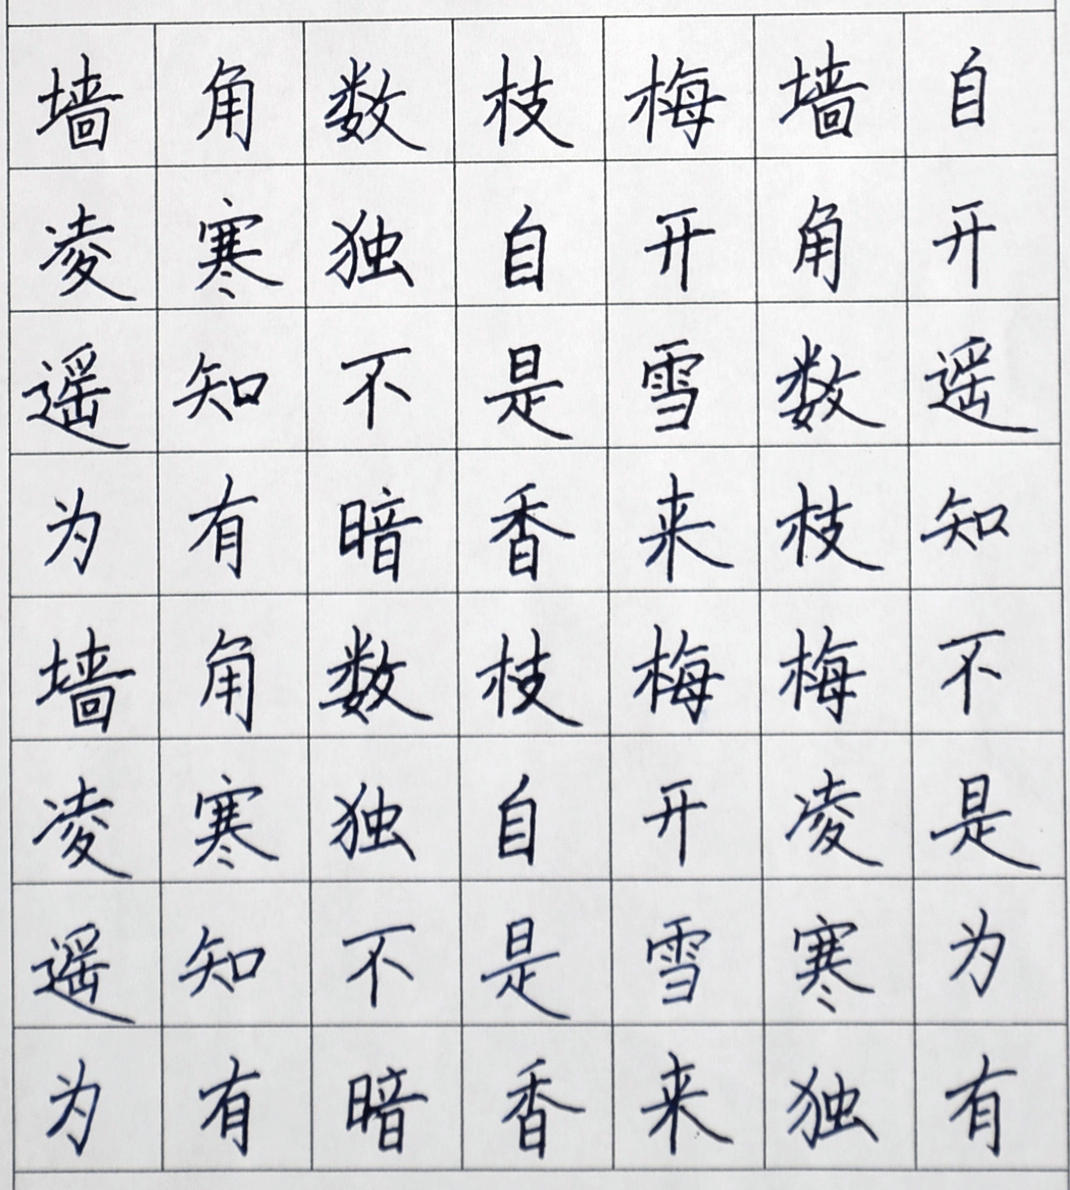 墙角数枝梅墙自
凌寒独自开角开
遥知不是雪数遥
为有暗香来枝知
墙角数枝梅梅不
凌寒独自开凌是
遥知不是雪寒为
为有暗香来独有